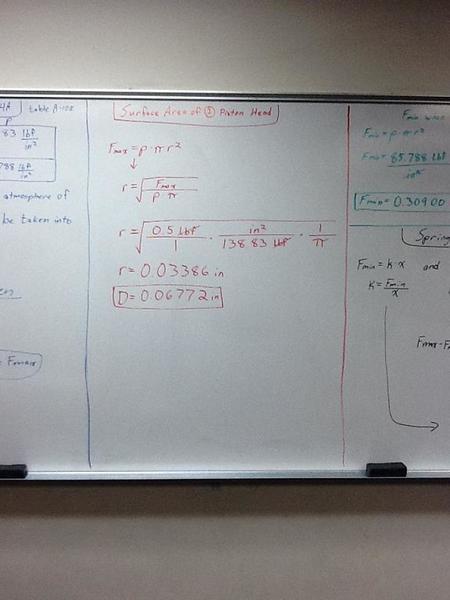 4A table A-10E
P
83 lbf/in²
788 lbf/in²
atmosphere of
be taken into
Fmax
Surface Area of ① Piston Head
Fmax = p · π r²
↓
r = √(Fmax / p · π)
r = √(0.5 lbf / 1 · in² / 138.83 lbf · 1 / π)
r = 0.03386 in
D = 0.06772 in
Fmin
Fmin = p · π r²
Fmin = 85.788 lbf / in²
Fmin = 0.30900
Spring
Fmin = k · x and
K = Fmin / x
Fmax - F